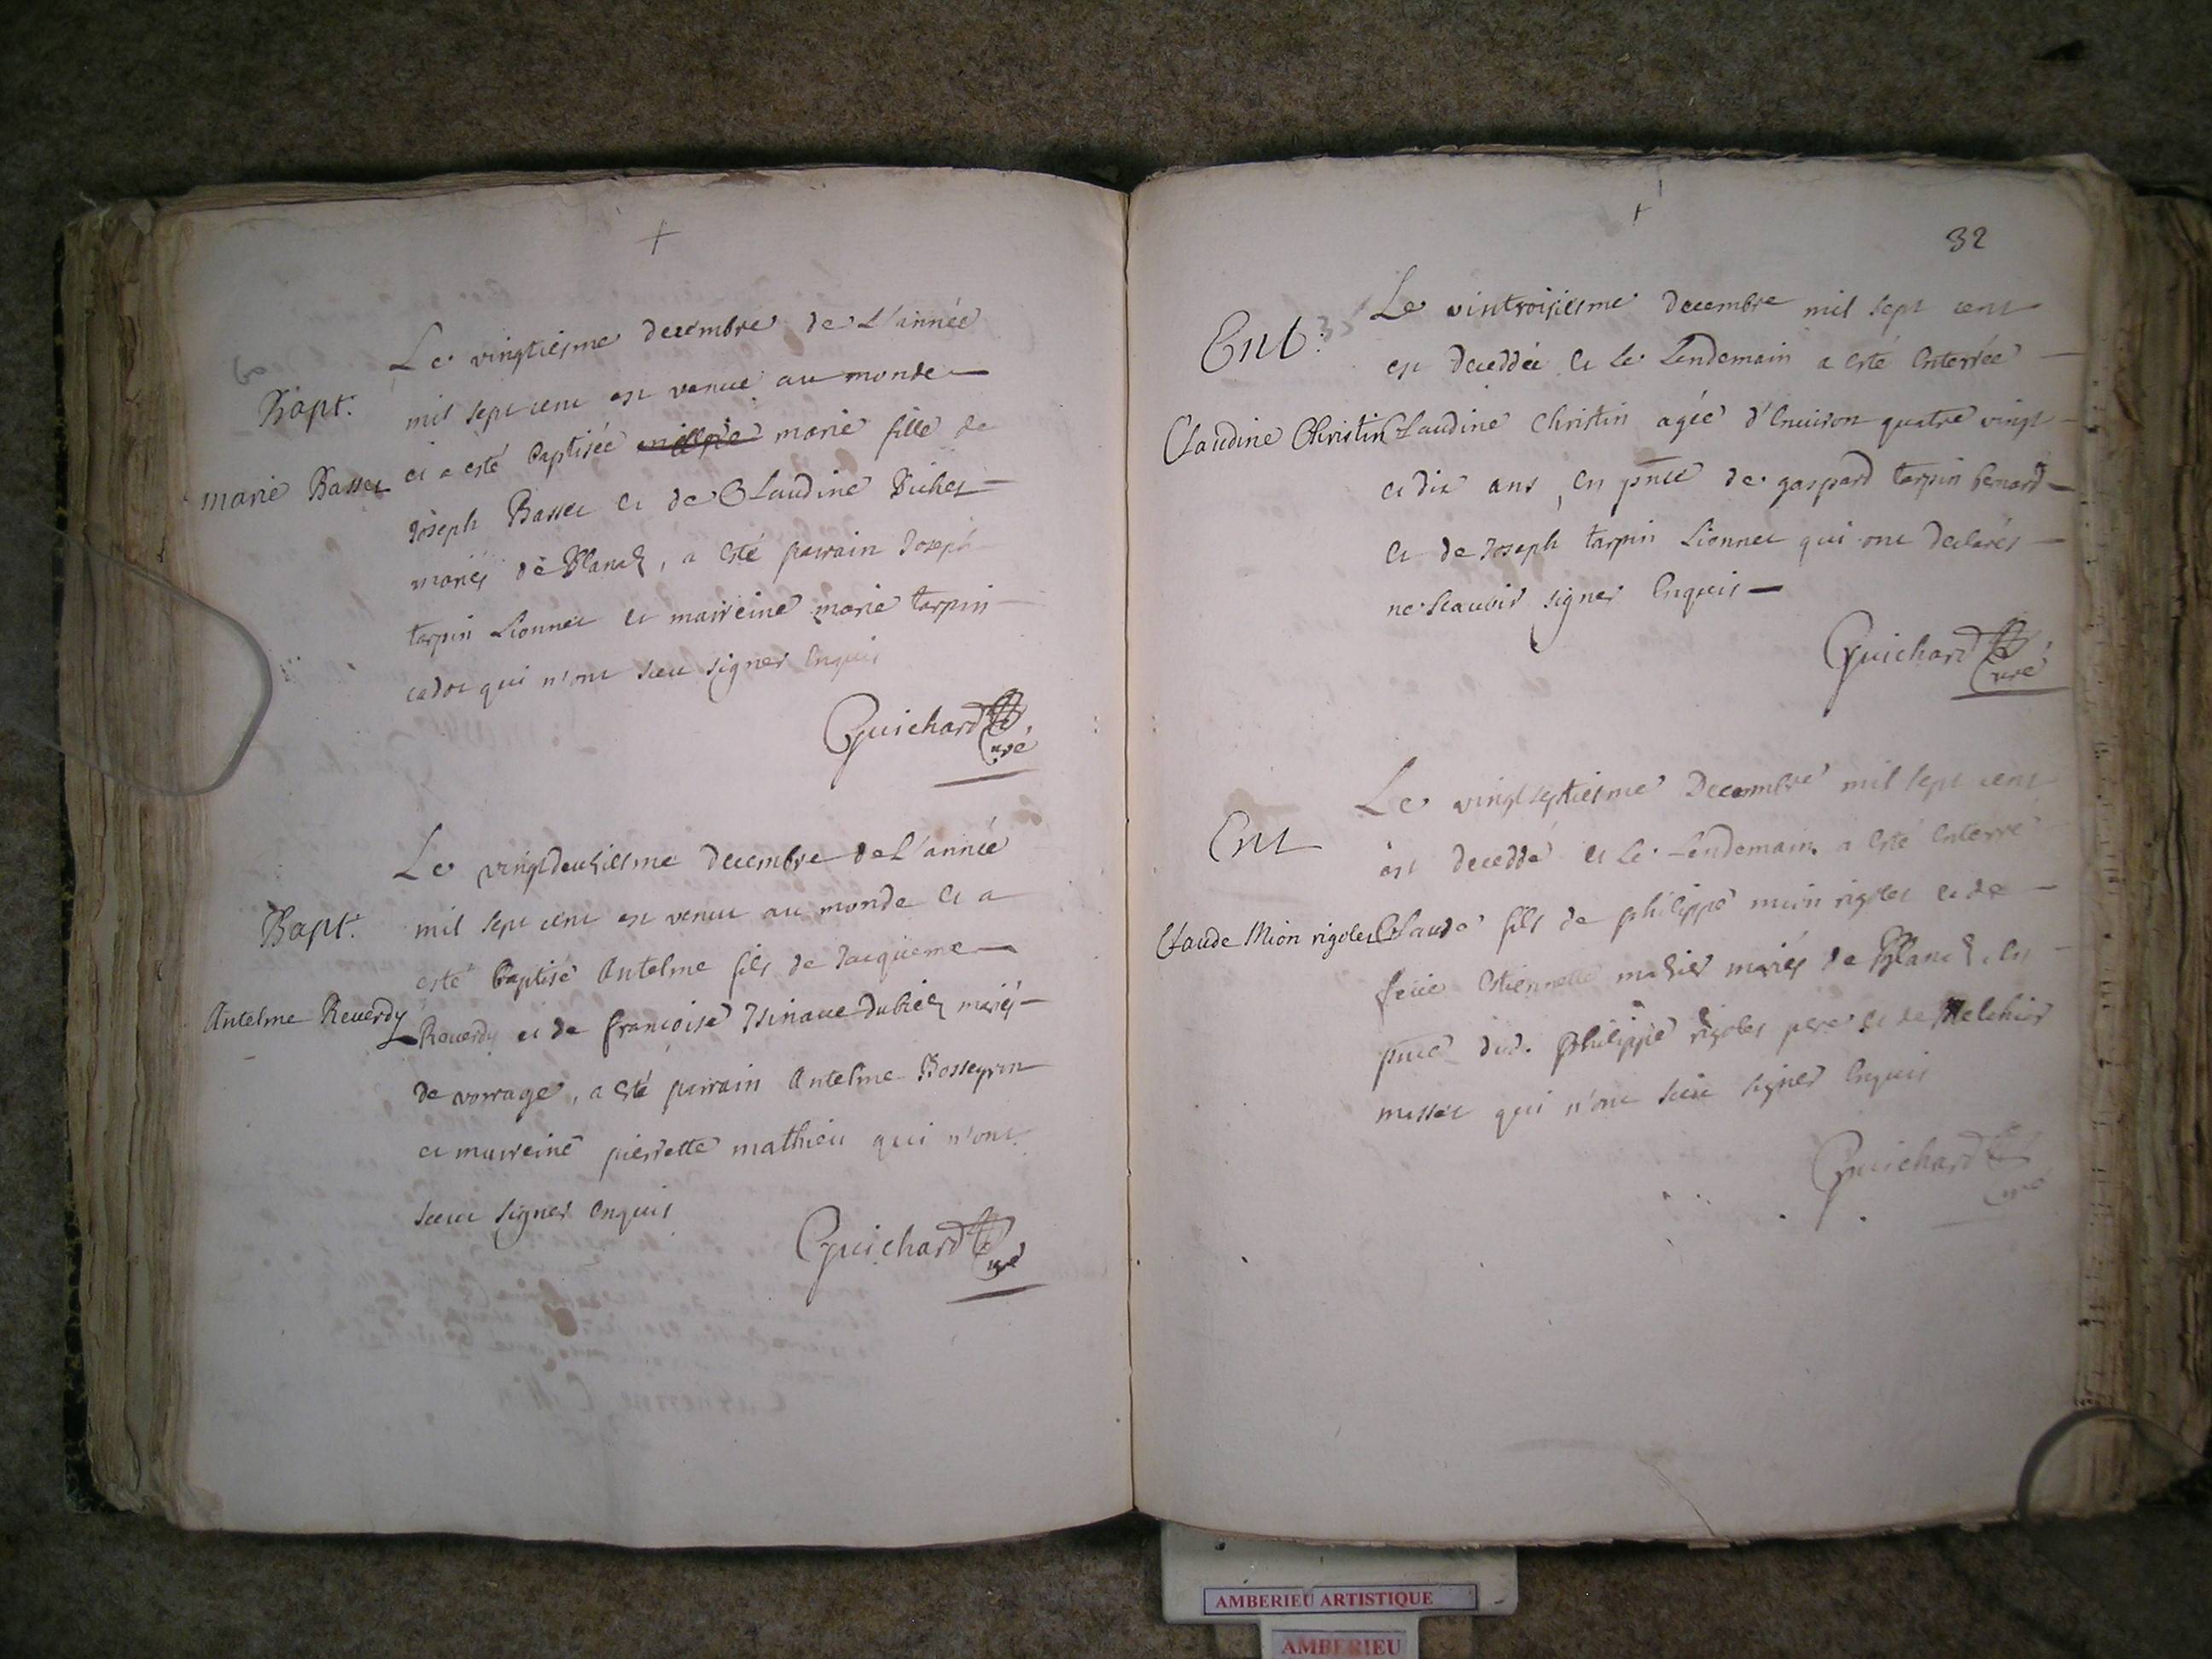 Bapt.
marie Basset
Le vingtiesme decembre de L'année
mil sept cent est venue au monde
et a esté baptisée marie fille de
Joseph Basset et de Claudine
mariés de Blanaz, a esté parrain Joseph
tarpin Lionnet et marreine marie tarpin
cadot qui n'ont sceu signer enquis
Guichard Curé
Bapt.
Antelme Reverdy
Le vingtdeuxiesme decembre de L'année
mil sept cent est venu au monde et a
esté baptisé Antelme fils de Jacqueme
Reverdy et de françoise mariés
de vorrage, a esté parrain Antelme Bosseyron
et marreine pierrette mathieu qui n'ont
sceu signer enquis
Guichard Curé
32
Ent. 35
Claudine Christin
Le vintroisiesme decembre mil sept cent
est deceddée et le Lendemain a esté enterrée
Claudine Christin agée d'environ quatre vingt
et dix ans, en pnce de gaspard tarpin benard
et de Joseph tarpin Lionnet qui ont declarés
ne sçavoir signer enquis
Guichard Curé
Ent
Claude Mion rigolet
Le vingtseptiesme Decembre mil sept cent
est deceddé et le Lendemain a esté enterré
Claude fils de philippe mion rigolet et de
feüe estiennette mariés de Blanaz, en
pnce dud. philippe rigolet pere et de Melchior
messet qui n'ont sceu signer enquis
Guichard Curé
AMBERIEU ARTISTIQUE
AMBERIEU